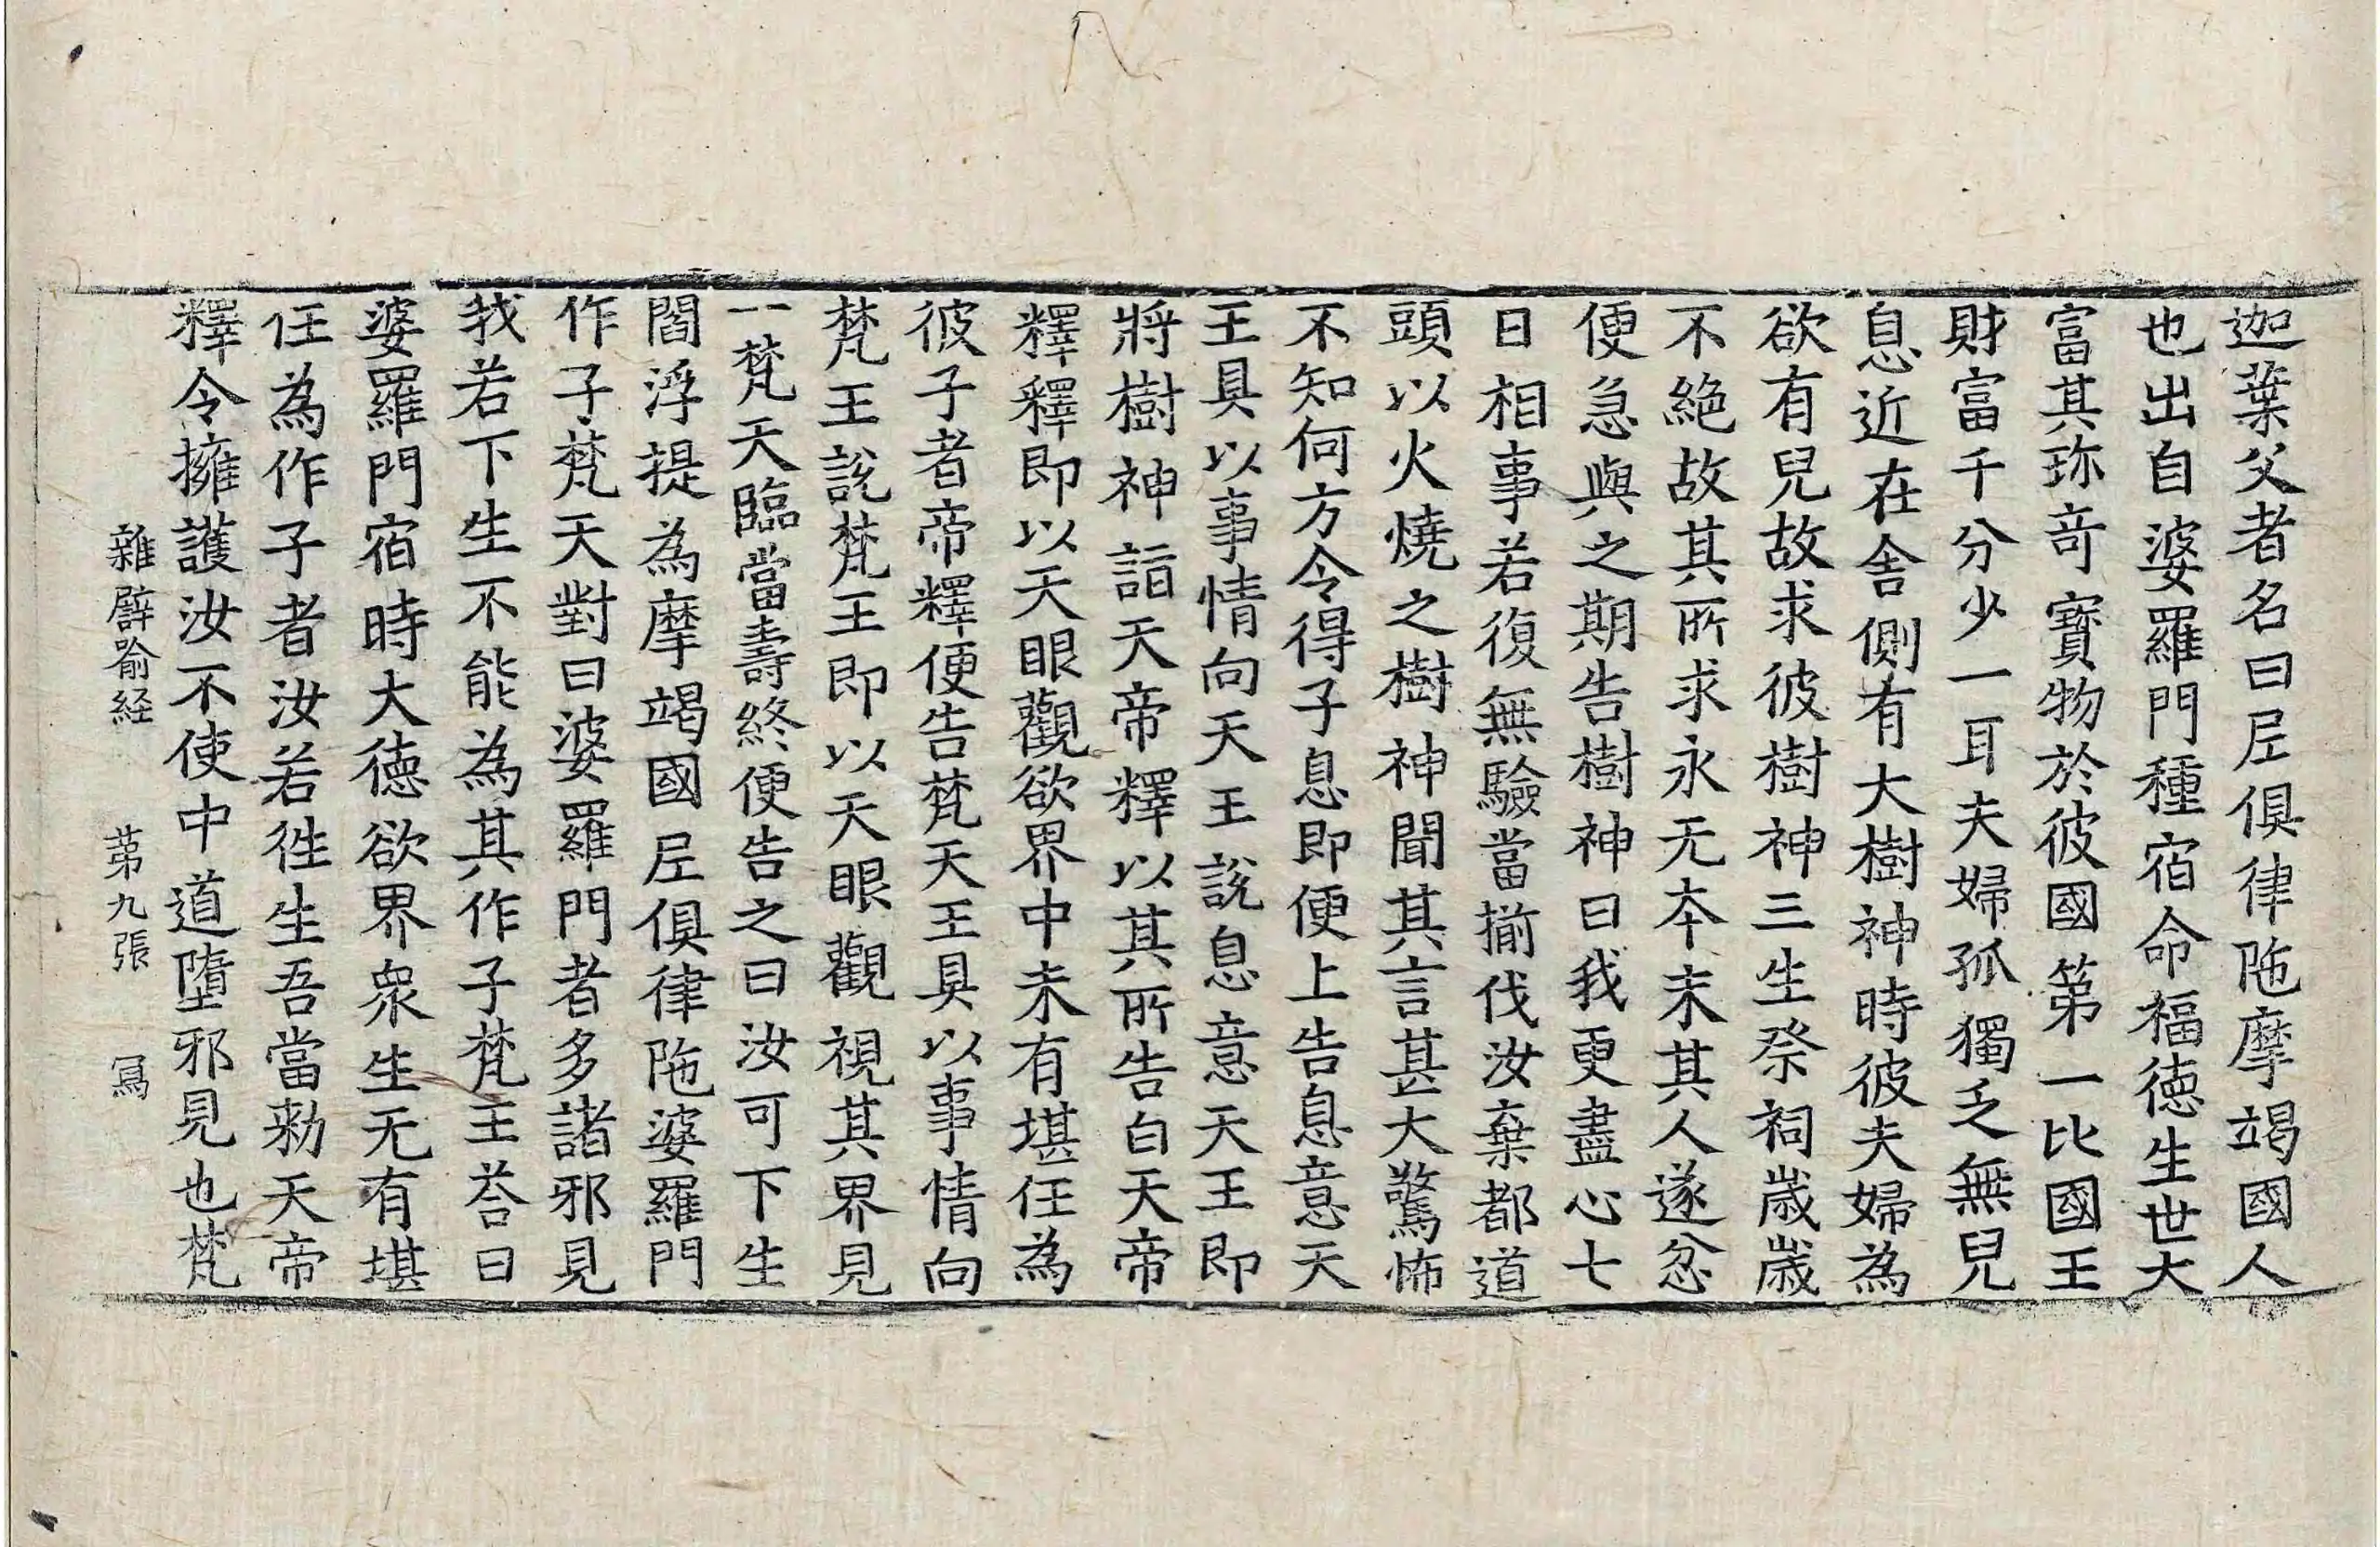 迦葉父者名曰𡰱俱律陁摩竭國人
也出自婆羅門種宿命福德生世大
富其珎竒寶物於彼國第一比國王
財富千分少一耳夫婦孤獨乏無兒
息近在舍側有大樹神時彼夫婦為
欲有兒故求彼樹神三生祭祠歲歲
不絶故其所求永无夲末其人遂忿
便急與之期告樹神曰我更盡心七
日相事若復無驗當揃伐汝棄都道
頭以火燒之樹神聞其言甚大驚怖
不知何方令得子息即便上告息意天
王具以事情向天王說息意天王即
將樹神詣天帝釋以其所告白天帝
釋釋即以天眼觀欲界中未有堪任為
彼子者帝釋便告梵天王具以事情向
梵王說梵王即以天眼觀視其界見
一梵天臨當壽終便告之曰汝可下生
閻浮提為摩竭國𡰱俱律陁婆羅門
作子梵天對曰婆羅門者多諸邪見
我若下生不能為其作子梵王荅曰
婆羅門宿時大德欲界衆生无有堪
任為作子者汝若徃生吾當勑天帝
釋令擁護汝不使中道墮邪見也梵
雜辟喻経 苐九張 冩